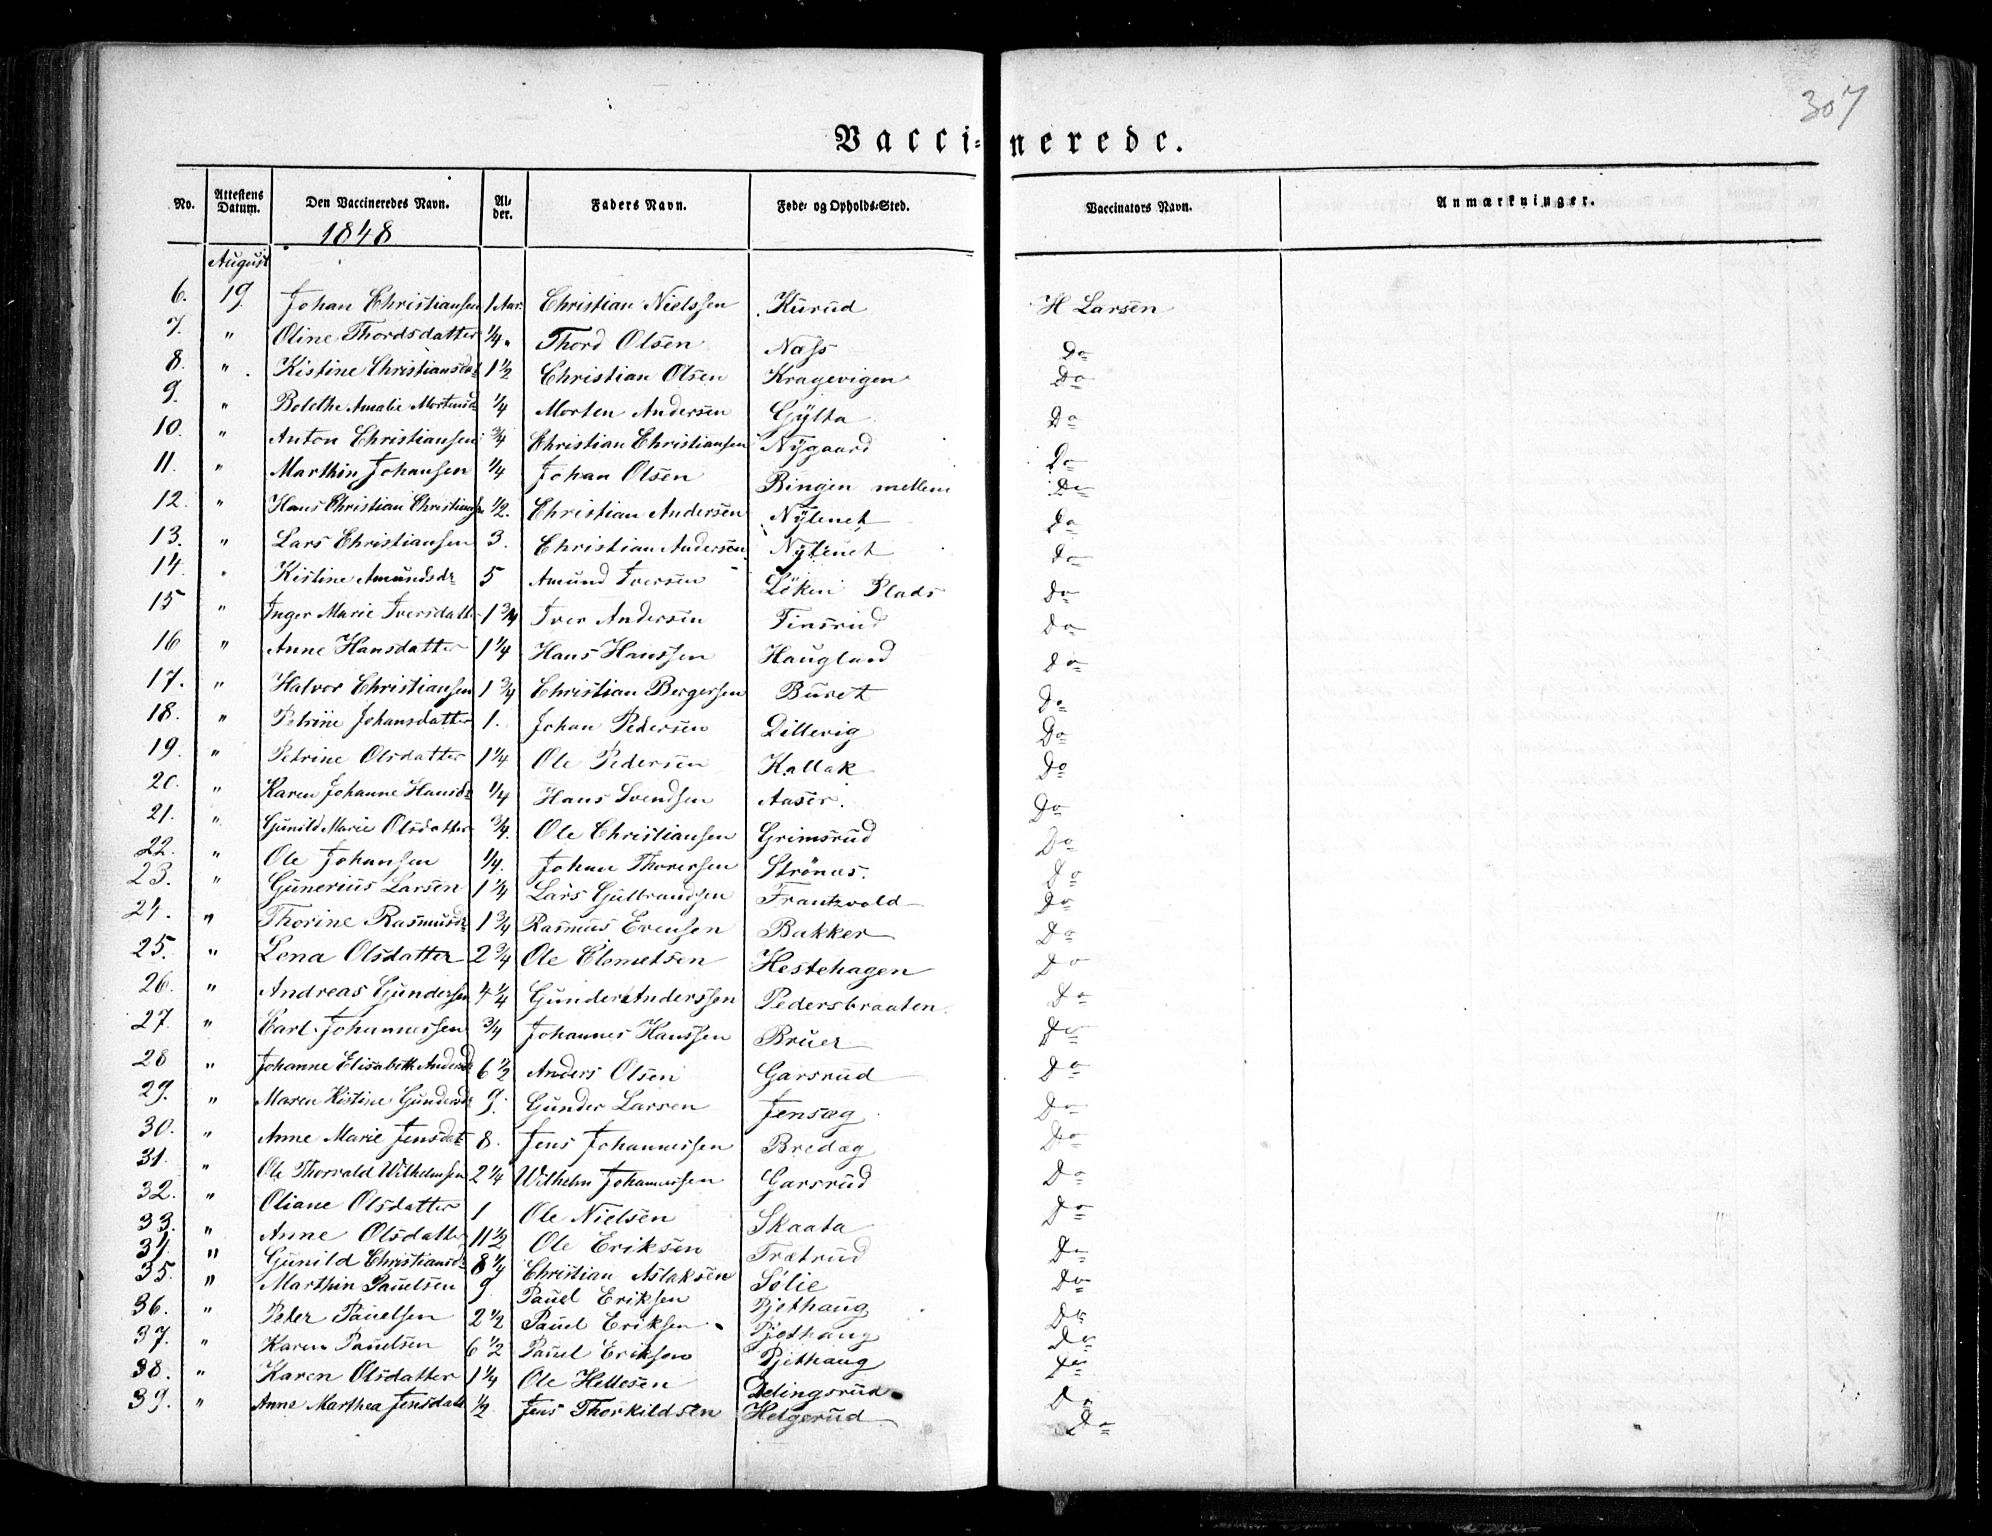 307
Vaccinerede.
No. Attestens Datum. Den Vaccineredes Navn. Alder. Faders Navn. Føde- og Opholds-Sted. Vaccinators Navn. Anmærkninger.
1848
August
6. 19. Johan Christiansen 1 Aar. Christian Nielssen Kurud H Larsen
7. " Oline Thordsdatter 1/4 " Thord Olsen Næss Do
8. " Kistine Christiansdat 1 1/2 Christian Olsen Kragevigen Do
9. " Bolethe Amalie Mortensd 1/4 Morten Andersen Gylta Do
10. " Anton Christiansen 3/4 Christian Christiansen Nygaard Do
11. " Marthin Johansen 1/4 Johan Olsen Bingen mellem Do
12. " Hans Christian Christianse 1/2. Christian Andersen Nylenet Do
13. " Lars Christiansen 3. Christian Andersen Nylenet Do
14. " Kistine Amundsdr 5 Amund Iversen Løken Plads Do
15 " Inger Marie Iversdatter 1 3/4 Iver Andersen Finsrud Do
16 " Anne Hansdatter 1 1/4 Hans Hanssen Haugland Do
17. " Halvor Christiansen 1 3/4 Christian Bergersen Buret Do
18. " Petrine Johansdatter 1. Johan Pedersen Dillevig Do
19. " Petrine Olsdatter 1 1/4 Ole Pedersen Kallak Do
20. " Karen Johanne Hansdr 1/4 Hans Svendsen Aaser. Do
21. " Gunild Marie Olsdatter 3/4. Ole Christiansen Grimsrud Do
22. " Ole Johansen 1/4. Johan Thorersen Strønes. Do
23. " Gunerius Larsen 1 1/4 Lars Gulbrandsen Frantzvold Do
24. " Thorine Rasmusdr 1 3/4 Rasmus Evensen Bakker Do
25. " Lena Olsdatter 2 3/4 Ole Clemetsen Hestehagen Do
26. " Andreas Gundersen 4 1/4 Gunder Anderssen Pedersbraaten. Do
27. " Carl Johannessen 3/4 Johannes Hanssen Bruer Do
28 " Johanne Elisabeth Andersd 6 1/2 Anders Olsen Garsrud Do
29. " Maren Kistine Gundersdr 9. Gunder Larsen Jensæg Do
30. " Anne Marie Jensdat 8. Jens Johannessen Bredæg Do
31. " Ole Thorvald Wilhelmsen 2 1/4 Wilhelm Johannessen Garsrud Do
32. " Oliane Olsdatter 1 Ole Nielsen Skaata Do
33. " Anne Olsdatter 11 1/2 Ole Eriksen Trætrud Do
34. " Gunild Christiansd 8 1/4 Christian Aslaksen Sølie Do
35. " Marthin Pauelsen 9 Pauel Eriksen Pjethaug Do
36. " Peter Pauelsen 2 1/2 Pauel Eriksen Pjethaug Do
37. " Karen Pauelsen 6 1/2 Pauel Eriksen Pjethaug Do
38. " Karen Olsdatter 1 1/4 Ole Hellesen Delingsrud Do
39. " Anne Marthea Jensdatt 1/2 Jens Thorkildsen Helgerud Do